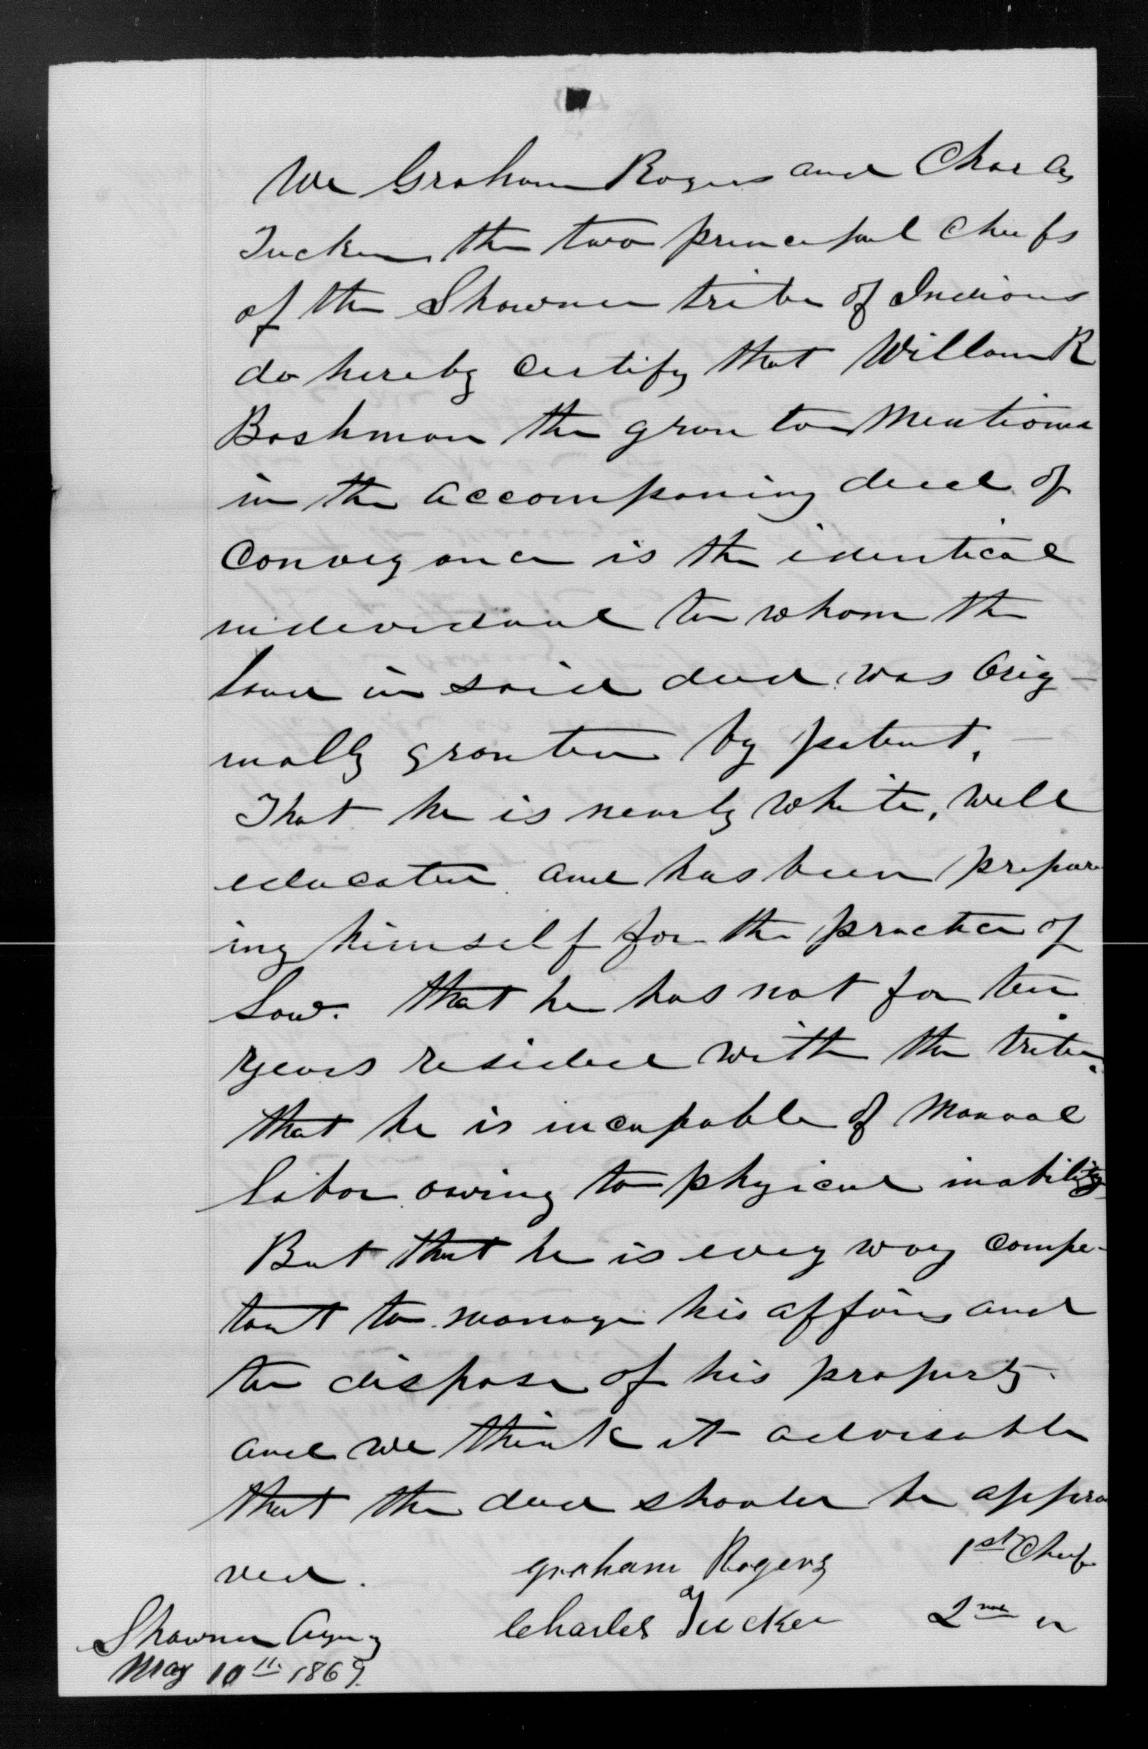 We Graham Rogers and Charles
Tucker, the two principal Chiefs
of the Shawnee tribe of Indians
do hereby certify that William R
Bashman the grantor mentioned
in the accompaning deed of
Conveyance is the identical
individual to whom the
land in said deed was Orig-
inally granted by patent. —
That he is nearly white, well
educated and has been prepar
ing himself for the practice of
Law. that he has not for ten
years resided with the tribe.
that he is incapable of manual
labor owing to physical inability
But that he is every way compe-
tant to manage his affairs and
to dispose of his property.
and we think it advisable
that the deed should be appro
ved.
Graham Rogers 1st Chief
Charles Tucker 2nd "
Shawnee Agency
May 10th 1869.